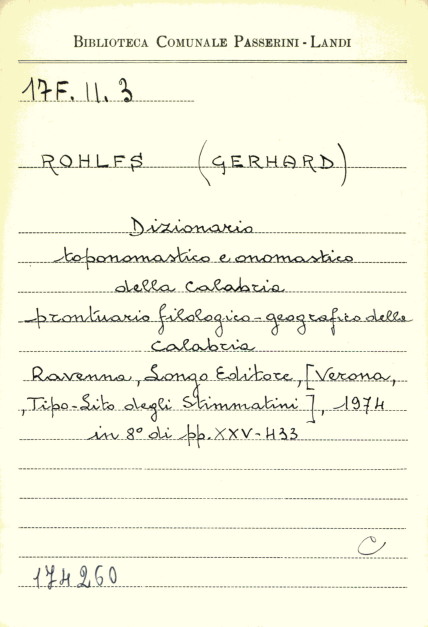 BIBLIOTECA COMUNALE PASSERINI - LANDI
17F. II. 3
ROHLFS (GERHARD)
Dizionario
toponomastico e onomastico
della Calabria
prontuario filologico-geografico della
Calabria
Ravenna, Longo Editore, [Verona,
,Tipo-Lito degli Stimmatini], 1974
in 8° di pp. XXV-433
C
174260